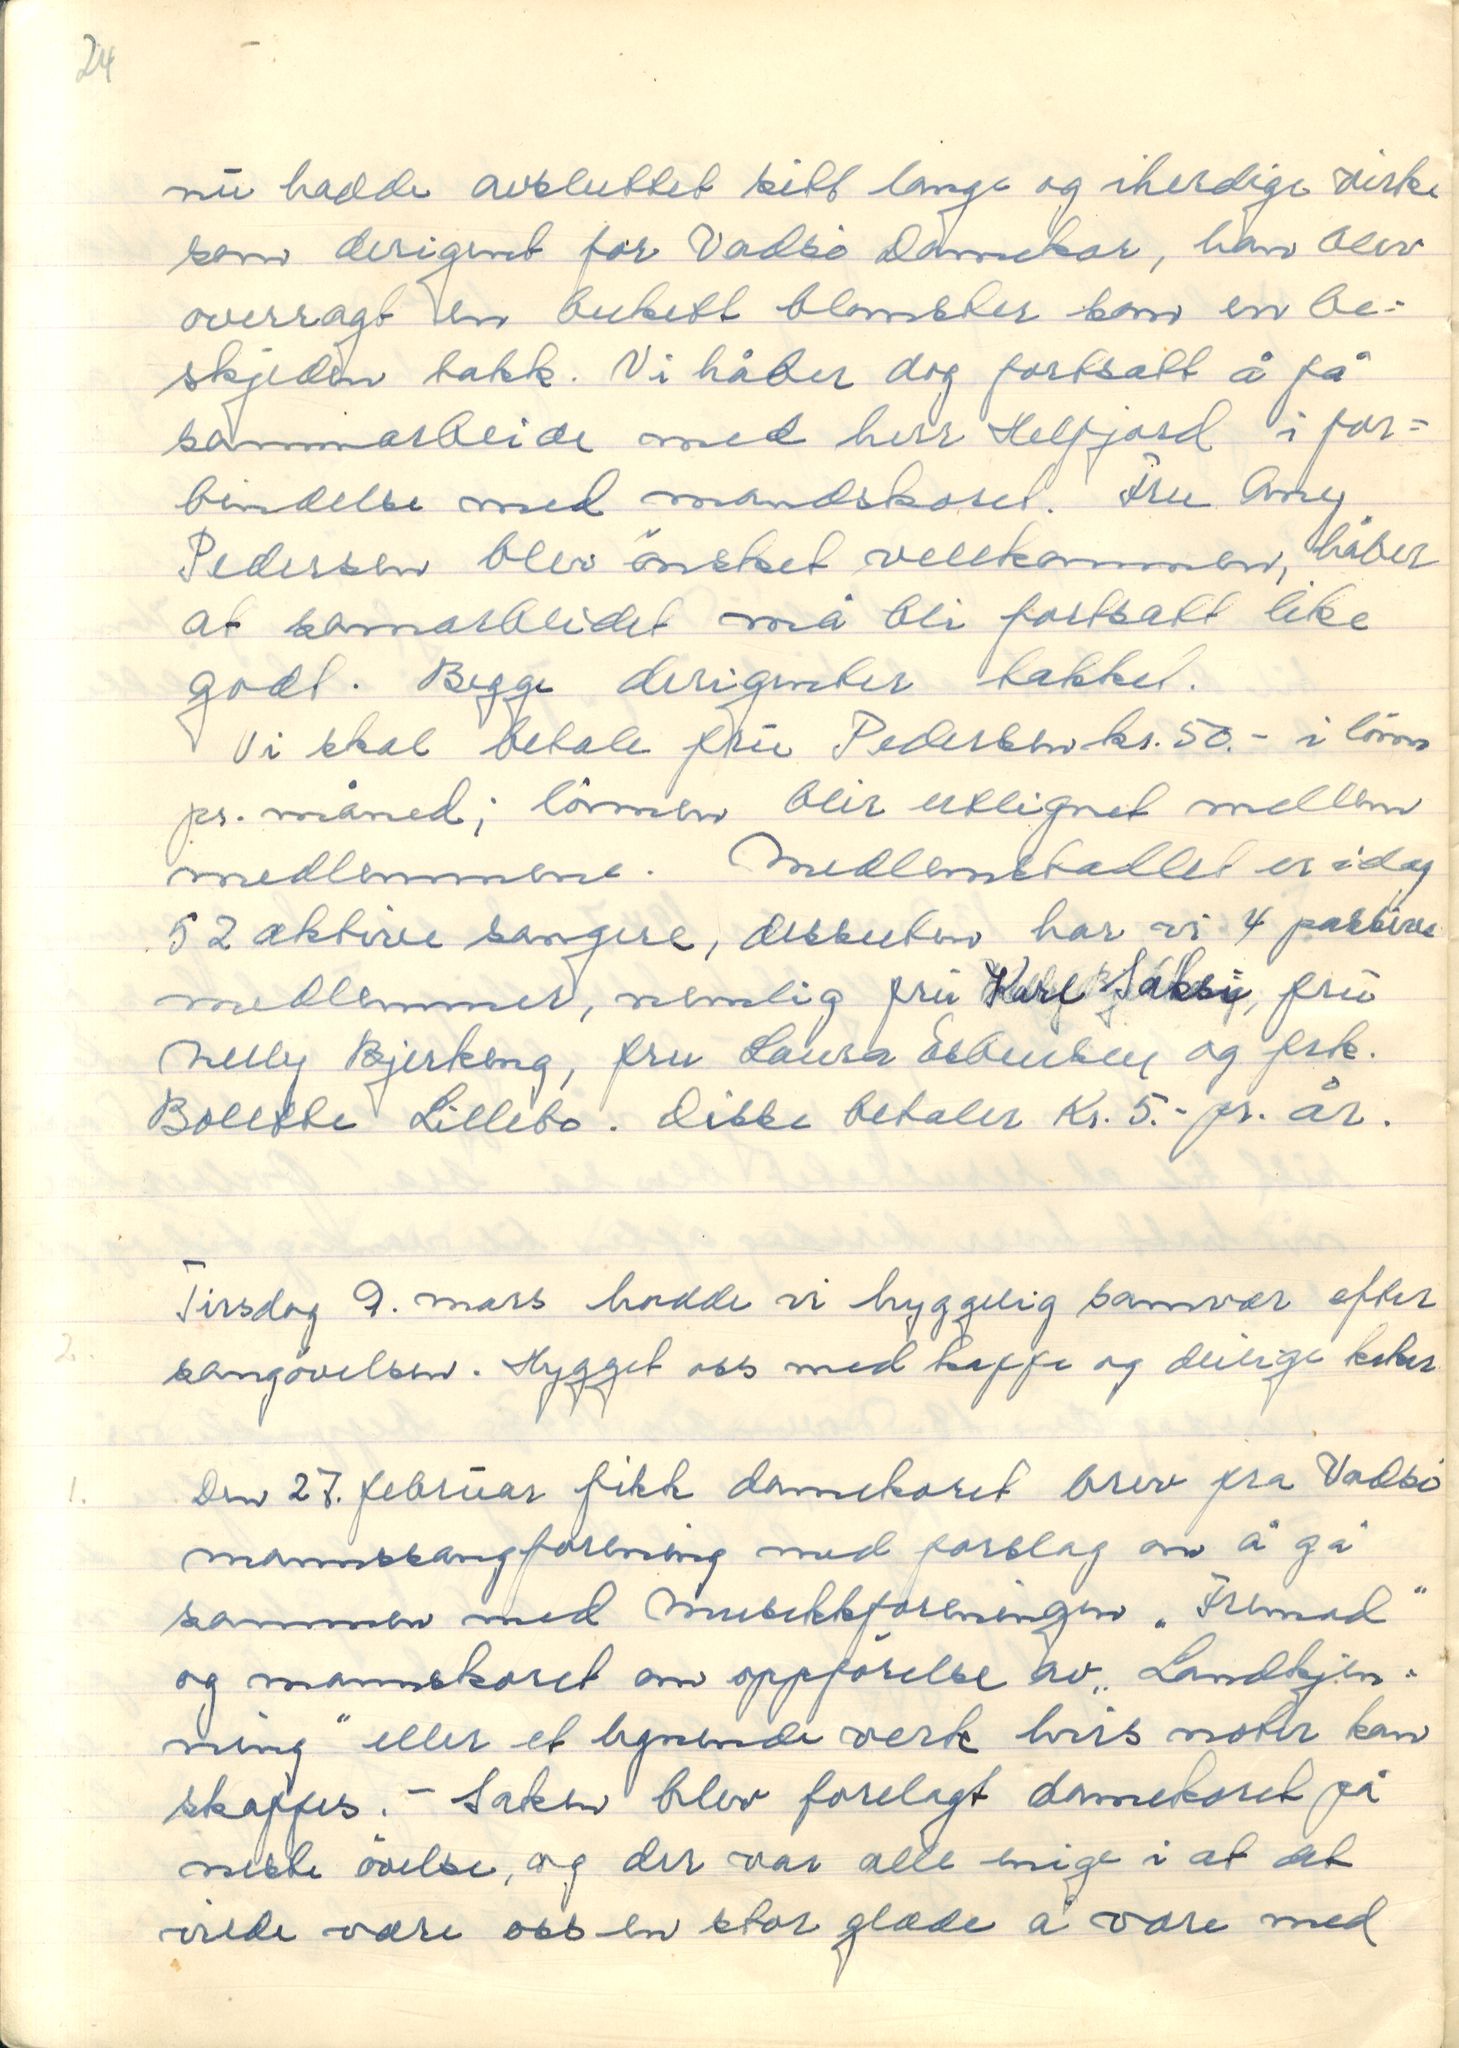 24
nu hadde avsluttet sitt lange og iherdige virke
som derigent for Vadsö Damekor, han blev
overragt en bukett blomster som en be=
skjeden takk. Vi håber dog fortsatt å få
sammarbeide med herr Helfjord i for=
bindelse med mandskoret. Fru Amy
Pedersen blev önsket vellkommen, håber
at samarbeidet må bli fortsatt like
godt. Begge derigenter takket.
Vi skal betale fru Pedersen kr. 50.- i lönn
pr. måned; lönnen blir utlignet mellem
medlemmene. Medlemstallet er idag
52 aktive sangere, dessuten har vi 4 passive
medlemmer, nemlig fru Karl Saksi, fru
Nelly Bjerkeng, fru Laura Esbensen og frk.
Bolette Lillebo. Disse betaler Kr. 5.- pr. år.
Tirsdag 9. mars hadde vi hyggelig samvær efter
2.
sangövelsen. Hygget oss med kaffe og deilige kaker
1. Den 27. februar fikk damekoret brev fra Vadsö
mannssangforening med forslag om å gå
sammen med Musikkforeningen "Fremad"
og mannskoret om oppförelse av "Landkjen-
ning" eller et lignende verk hvis noter kan
skaffes. - Saken blev forelagt damekoret på
neste övelse, og der var alle enige i at det
vilde være oss en stor glæde å være med